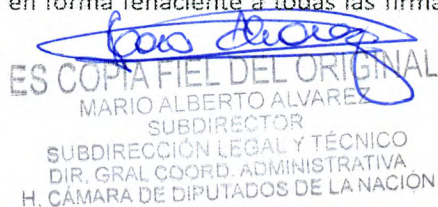 en forma fehaciente a todas las firma
ES COPIA FIEL DEL ORIGINAL
MARIO ALBERTO ALVAREZ
SUBDIRECTOR
SUBDIRECCIÓN LEGAL Y TÉCNICO
DIR. GRAL COORD. ADMINISTRATIVA
H. CÁMARA DE DIPUTADOS DE LA NACIÓN